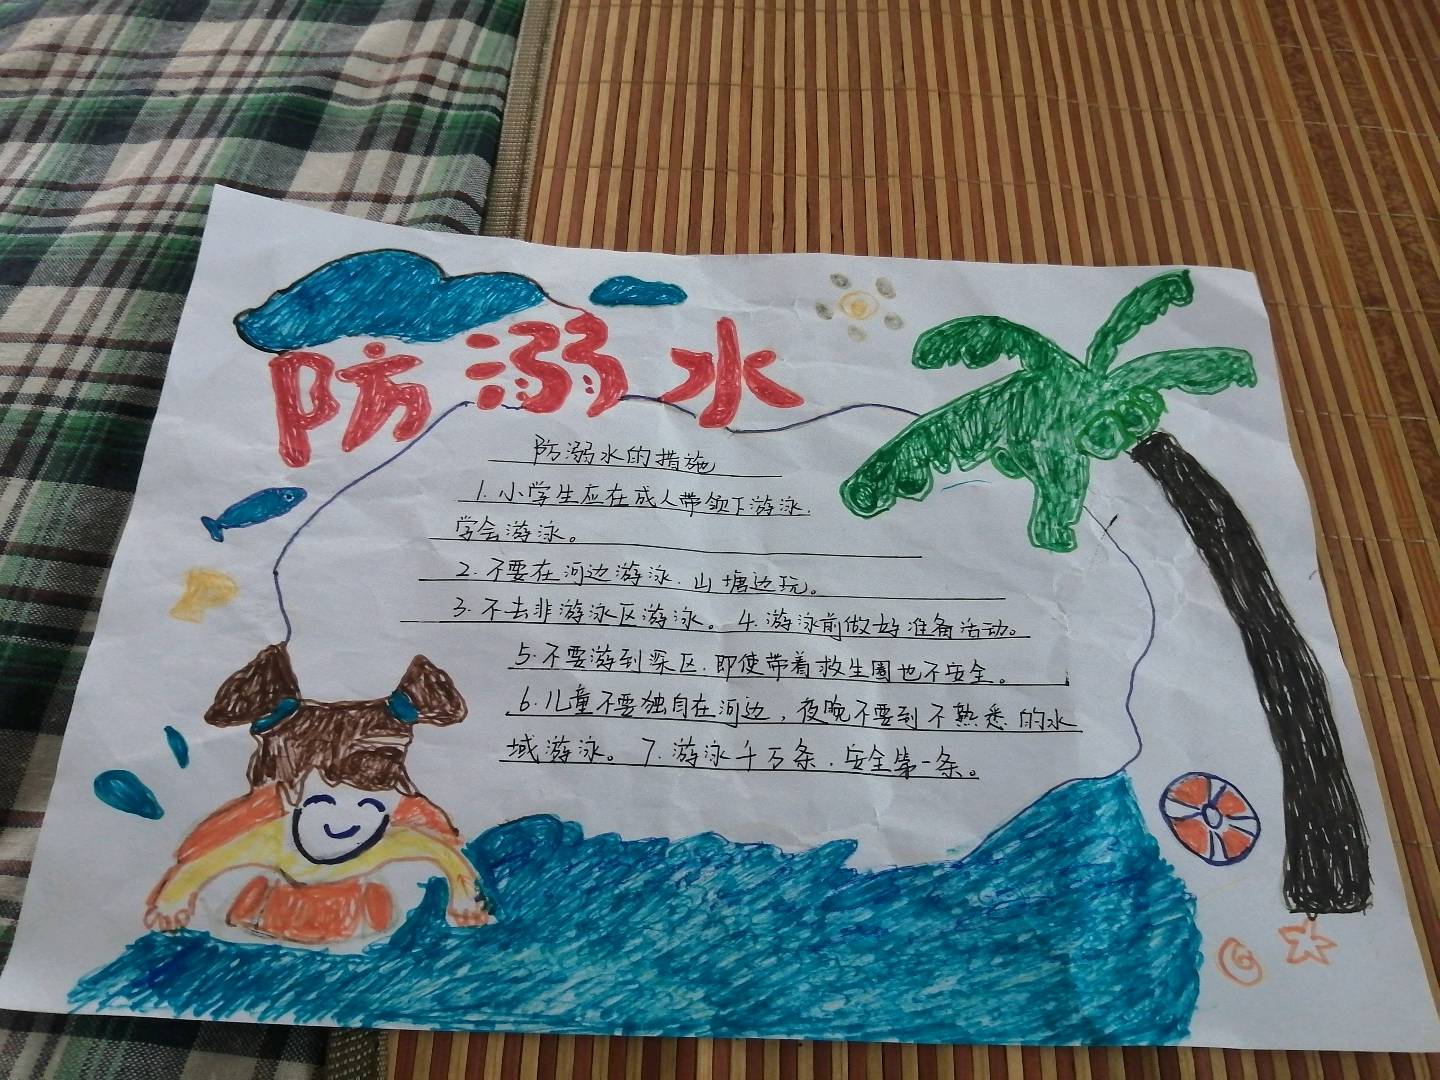 防溺水
防溺水的措施
1.小学生应在成人带领下游泳.
学会游泳。
2.不要在河边游泳.山塘边玩。
3.不去非游泳区游泳。4.游泳前做好准备活动。
5.不要游到深区.即使带着救生圈也不安全。
6.儿童不要独自在河边,夜晚不要到不熟悉的水
域游泳。7.游泳千万条.安全第一条。